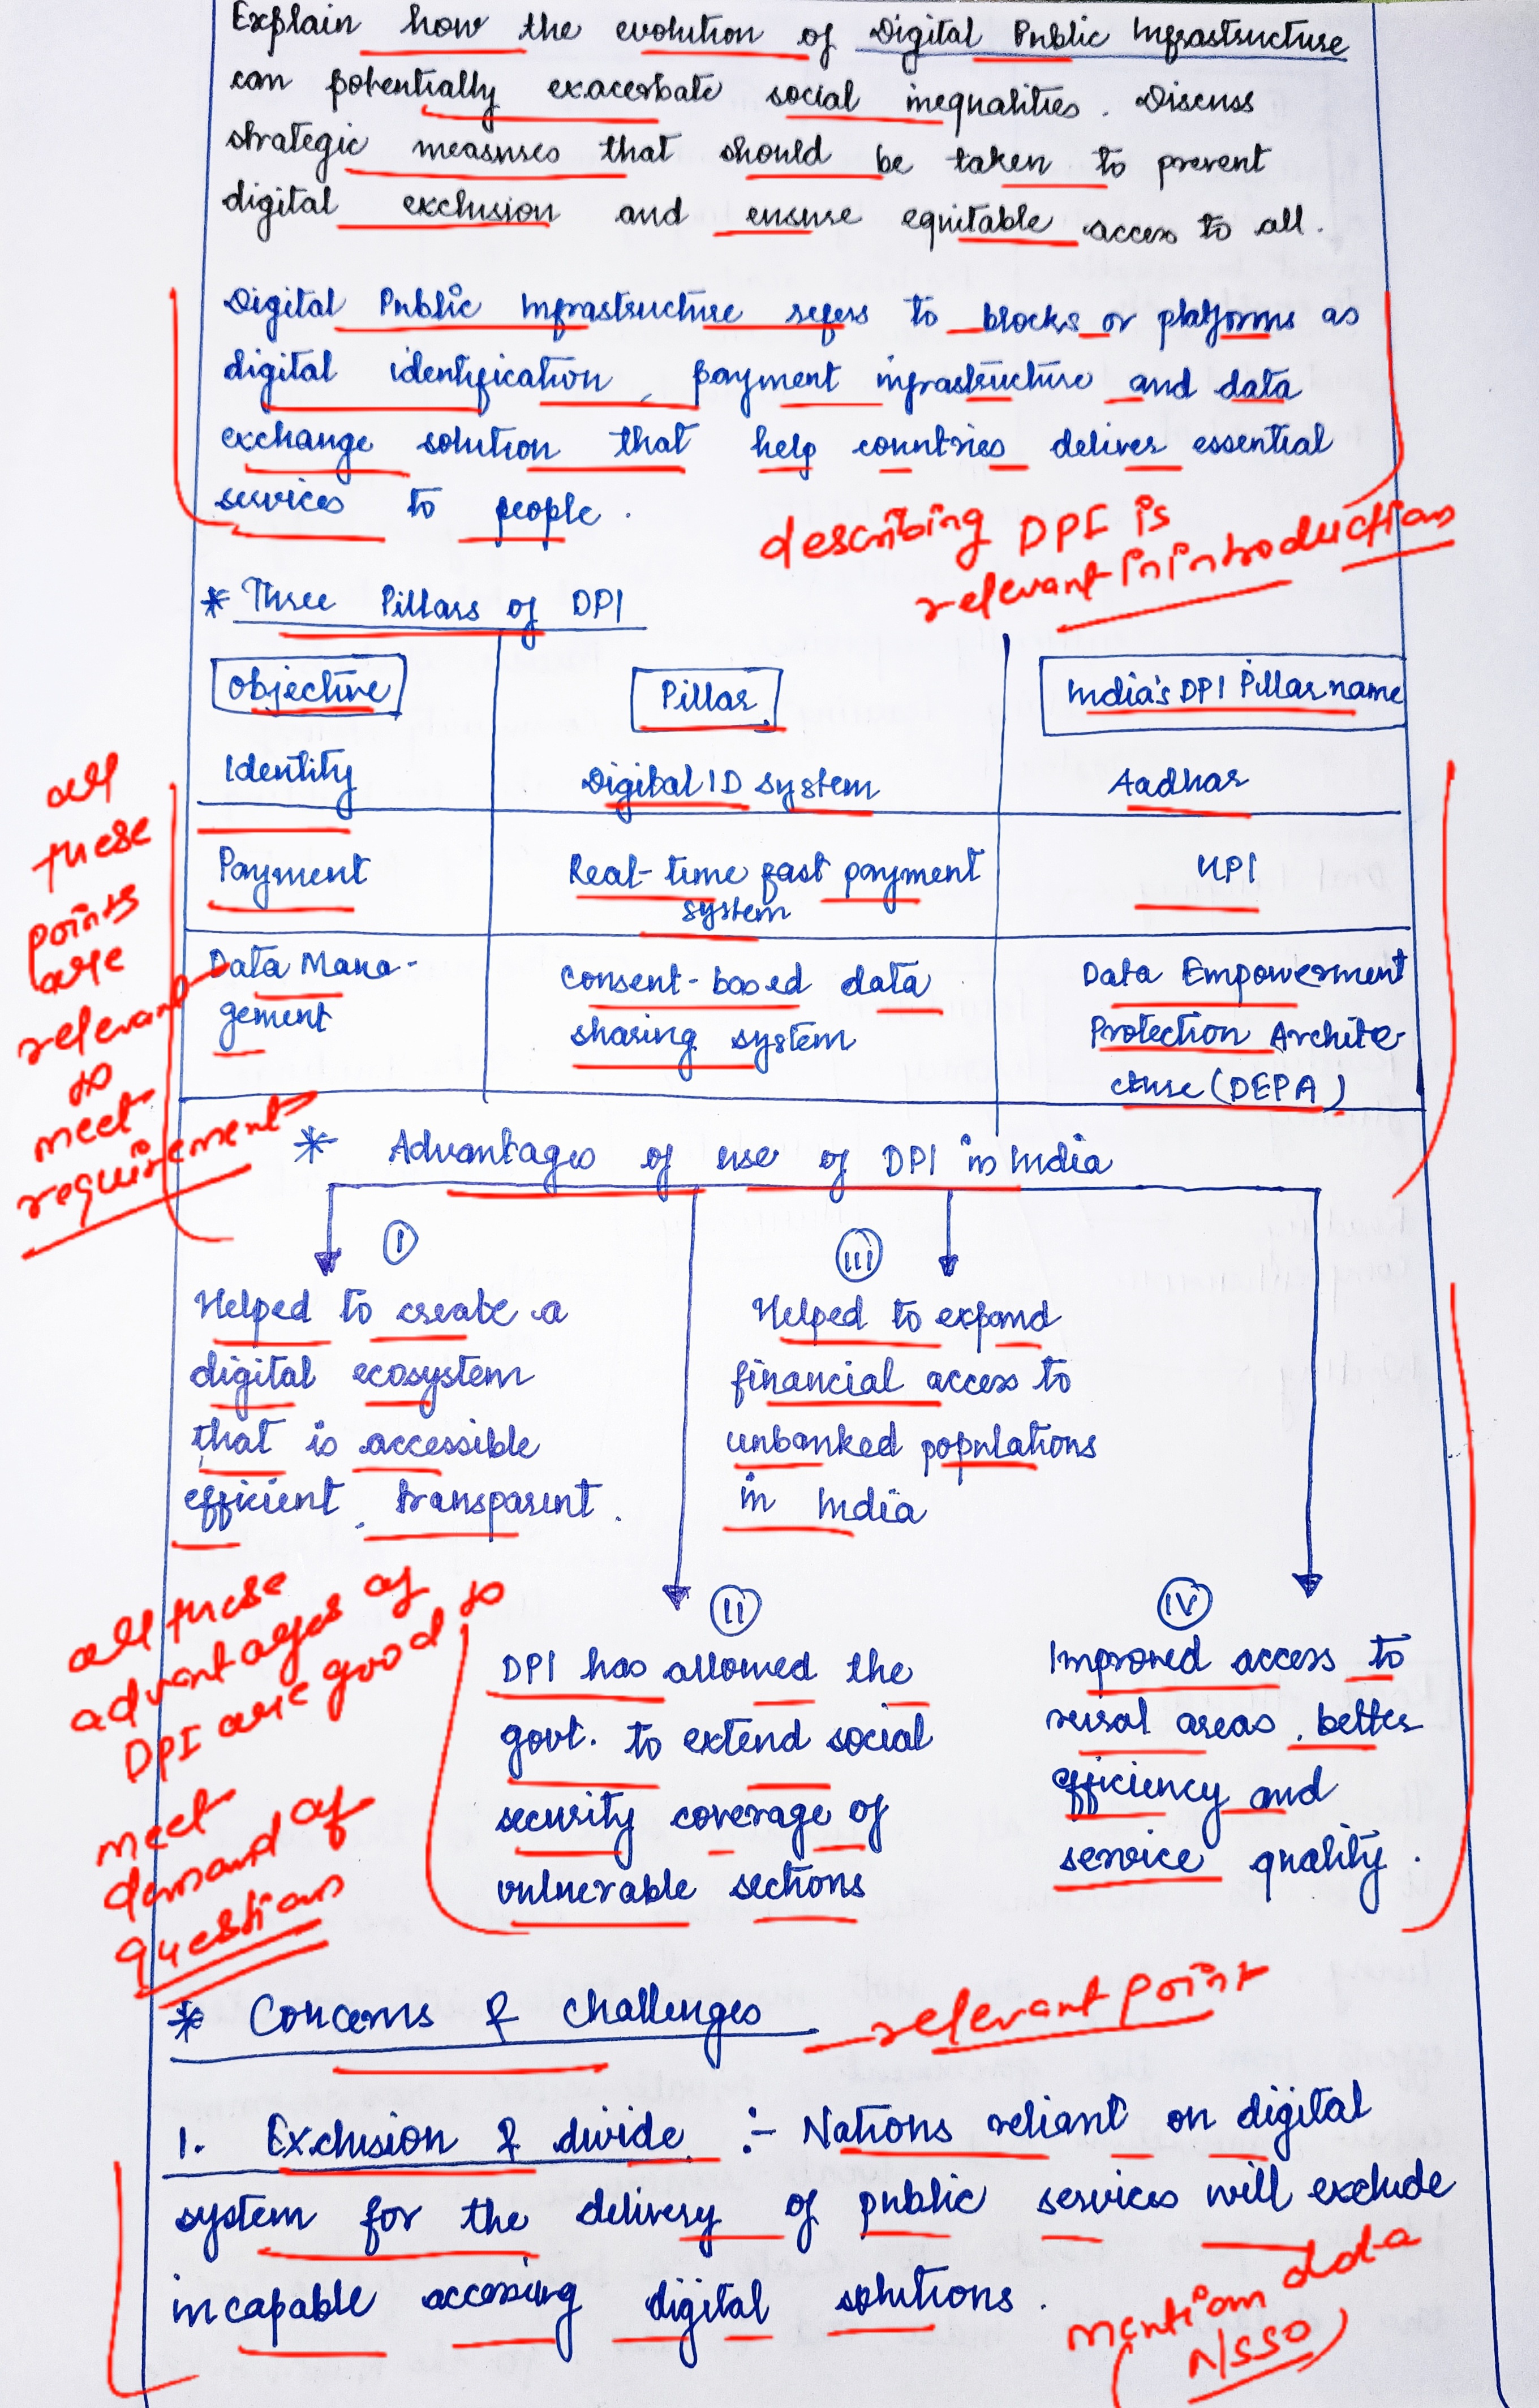 Explain how the evolution of Digital Public Infrastructure
can potentially exacerbate social inequalities. Discuss
strategic measures that should be taken to prevent
digital exclusion and ensure equitable access to all.
Digital Public Infrastructure refers to blocks or platforms as
digital identification, payment infrastructure and data
exchange solution that help countries deliver essential
services to people.
describing DPI is
relevant in introduction
* Three Pillars of DPI
Objective
Pillar
India's DPI Pillar name
Identity
Digital ID system
Aadhar
Payment
Real-time fast payment
system
UPI
Data Mana-
gement
Consent-based data
sharing system
Data Empowerment
Protection Archite-
cture (DEPA)
all
these
points
are
relevant
to
meet
requirement
* Advantages of use of DPI in India
I
Helped to create a
digital ecosystem
that is accessible
efficient, transparent.
III
Helped to expand
financial access to
unbanked populations
in India
II
DPI has allowed the
govt. to extend social
security coverage of
vulnerable sections
IV
Improved access to
rural areas, better
efficiency and
service quality.
all these
advantages of
DPI are good to
meet
demand of
question
* Concerns & challenges
relevant point
1. Exclusion & divide :- Nations reliant on digital
system for the delivery of public services will exclude
incapable accessing digital solutions.
mention data
(NSSO)